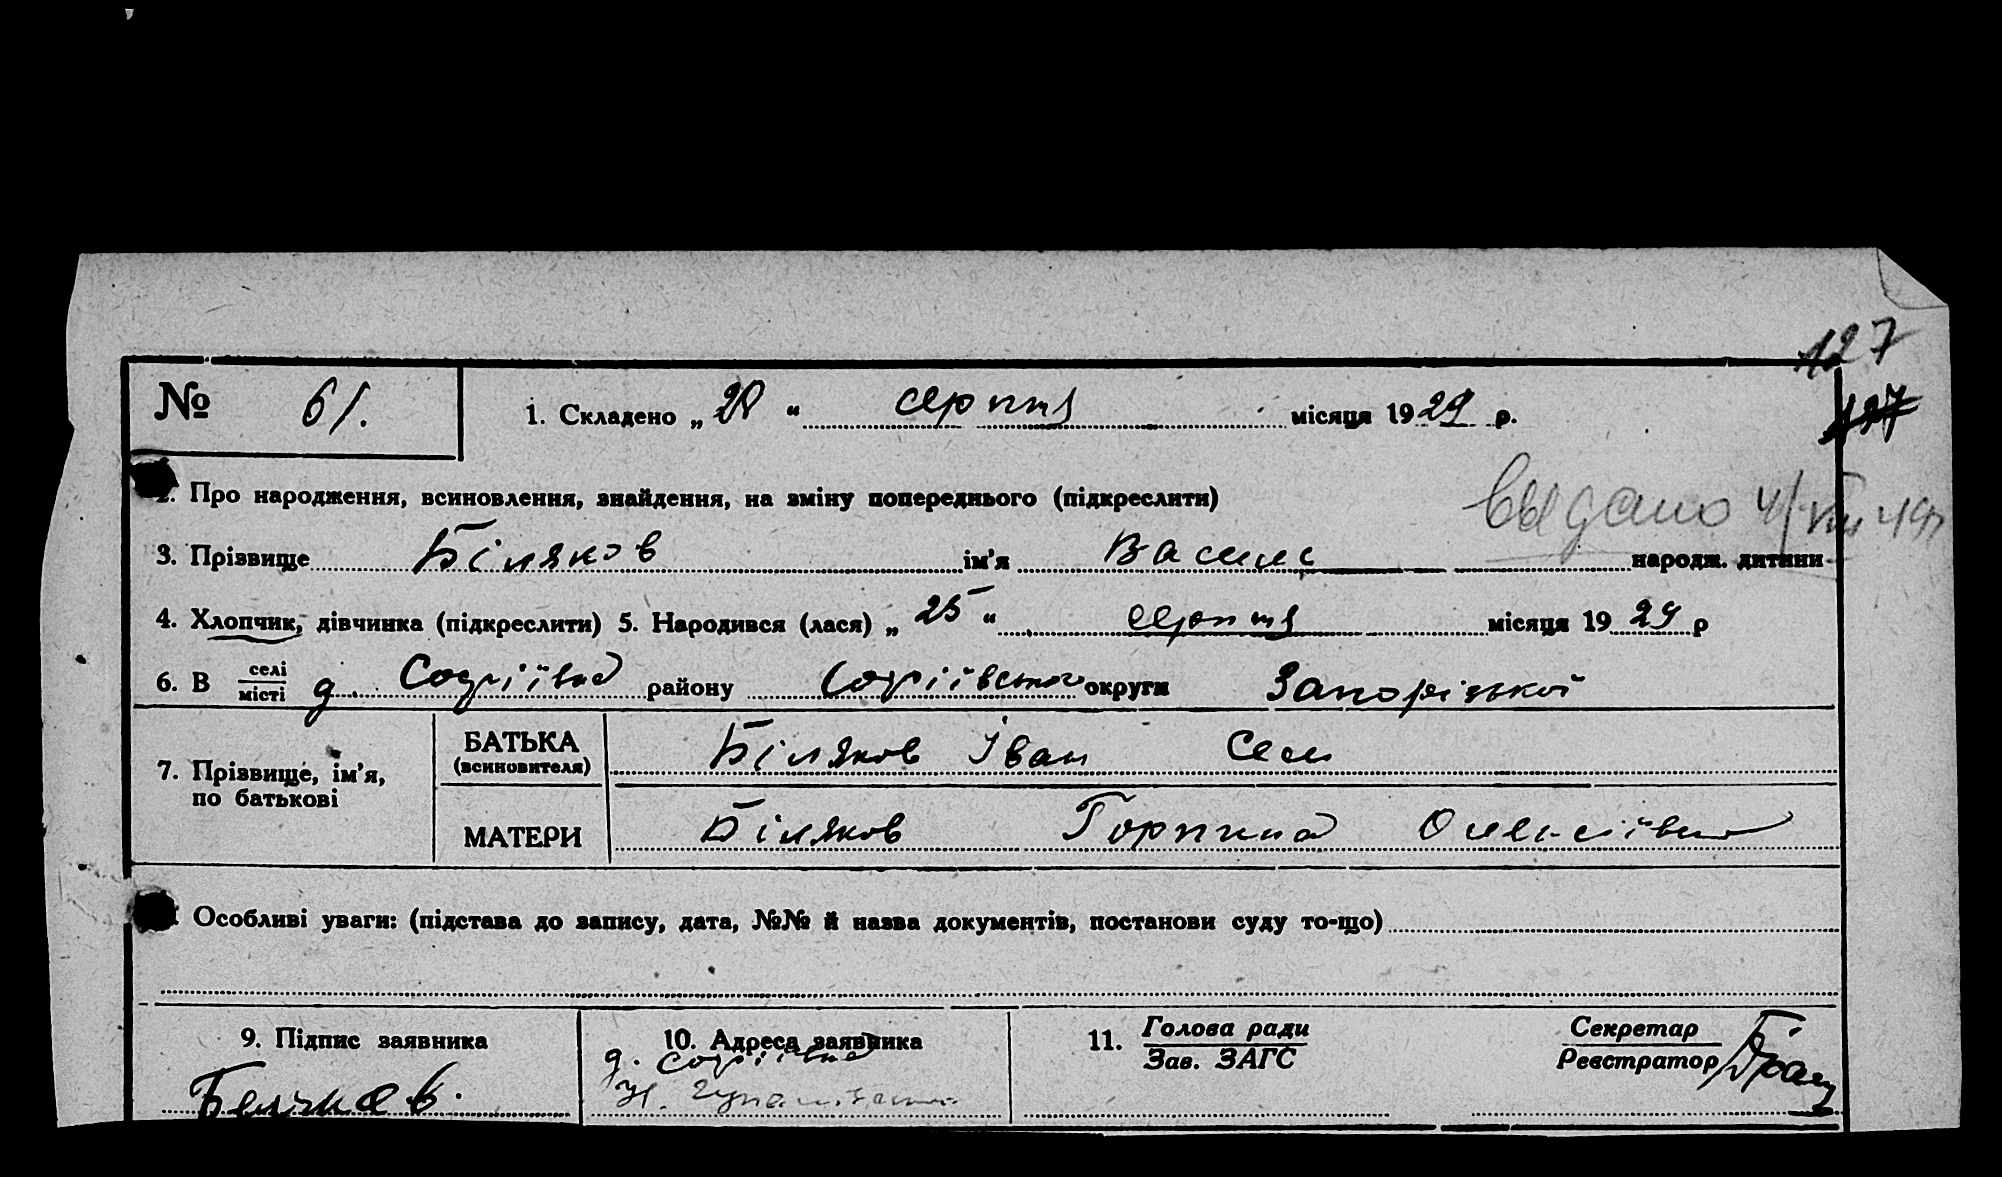 127
№ 61. 1. Складено „ 28 “ серпня місяця 1929 р.
127
2. Про народження, всиновлення, знайдення, на зміну попереднього (підкреслити)
выдано 4/VIII 49
3. Прізвище Біляков ім'я Василь народж. дитини
4. Хлопчик, дівчинка (підкреслити) 5. Народився (лася) „ 25 “ серпня місяця 1929 р
6. В селі/місті д. Софіївка району Софіївського округи Запорізької
7. Прізвище, ім'я, по батькові
БАТЬКА (всиновителя) Біляков Іван Сем
МАТЕРИ Біляков Горпина Олексіївна
Особливі уваги: (підстава до запису, дата, №№ й назва документів, постанови суду то-що)
9. Підпис заявника
Беляков.
10. Адреса заявника
д. Софіївка
ул.
11. Голова ради / Зав. ЗАГС
Секретар / Реєстратор